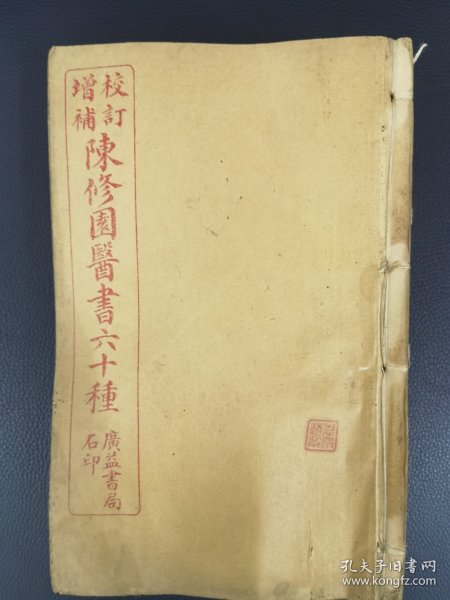 校訂
增補
陳修園醫書六十種
廣益書局
石印
孔夫子旧书网
www.kongfz.com